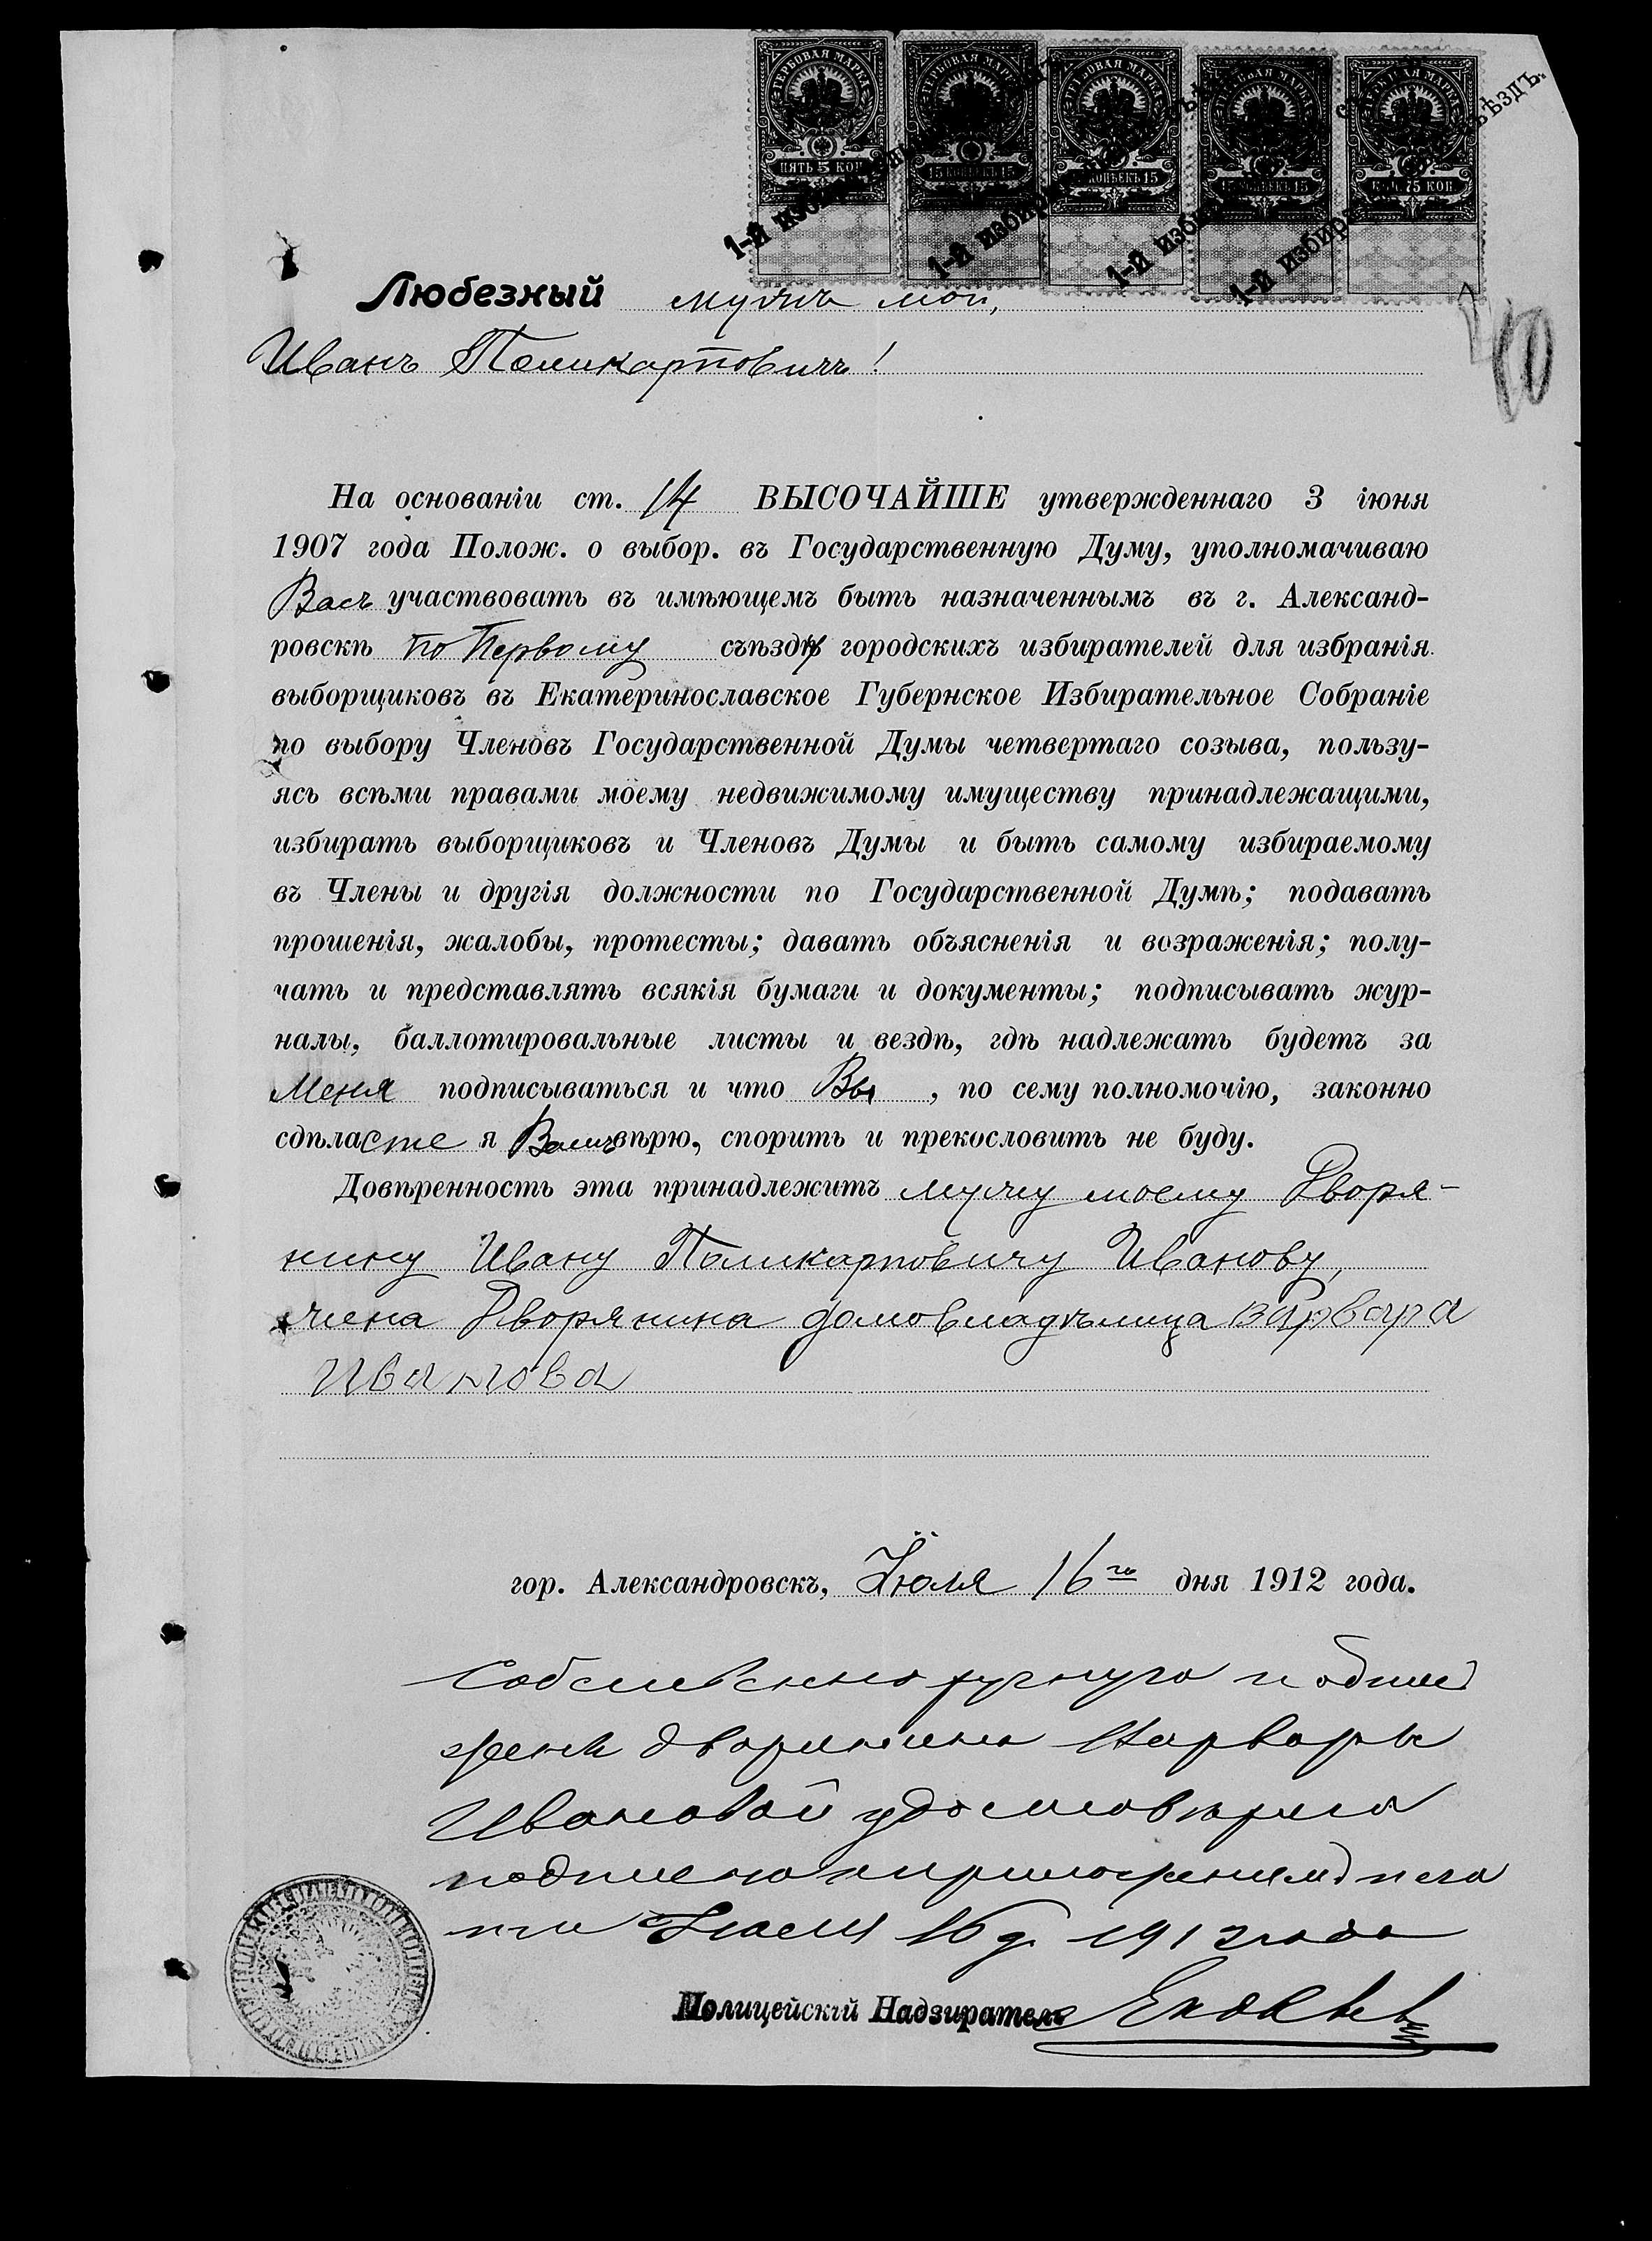 ГЕРБОВАЯ МАРКА ГЕРБОВАЯ МАРКА ГЕРБОВАЯ МАРКА ГЕРБОВАЯ МАРКА ГЕРБОВАЯ МАРКА
ПЯТЬ 5 КОП 15 КОПѢЕКЪ 15 КОПѢЕКЪ 15 15 КОПѢЕКЪ 15 КОП. 75 КОП
1-й избир 1-й избир 1-й изби 1-й избир съѣздъ.
Любезный мужъ мой,
Иванъ Поликарповичъ!
10
На основаніи ст. 14 ВЫСОЧАЙШЕ утвержденнаго 3 іюня
1907 года Полож. о выбор. въ Государственную Думу, уполномачиваю
Васъ участвовать въ имѣющемъ быть назначеннымъ въ г. Александ-
ровскѣ по Первому съѣзду городскихъ избирателей для избранія
выборщиковъ въ Екатеринославское Губернское Избирательное Собраніе
по выбору Членовъ Государственной Думы четвертаго созыва, пользу-
ясь всѣми правами моему недвижимому имуществу принадлежащими,
избирать выборщиковъ и Членовъ Думы и быть самому избираемому
въ Члены и другія должности по Государственной Думѣ; подавать
прошенія, жалобы, протесты; давать объясненія и возраженія; полу-
чать и представлять всякія бумаги и документы; подписывать жур-
налы, баллотировальные листы и вездѣ, гдѣ надлежать будетъ за
Меня подписываться и что Вы, по сему полномочію, законно
сдѣласте я Вамъ вѣрю, спорить и прекословить не буду.
Довѣренность эта принадлежитъ мужу моему Дворя-
нину Ивану Поликарповичу Иванову,
жена Дворянина домовладѣлица Варвара
Иванова
гор. Александровскъ, Іюля 16го дня 1912 года.
Собственноручную подпись
жены дворянина Варвары
Ивановой удостовѣряю
подписью и приложеніемъ печа
ти Іюля 16 д. 1912 года
Полицейскій Надзиратель